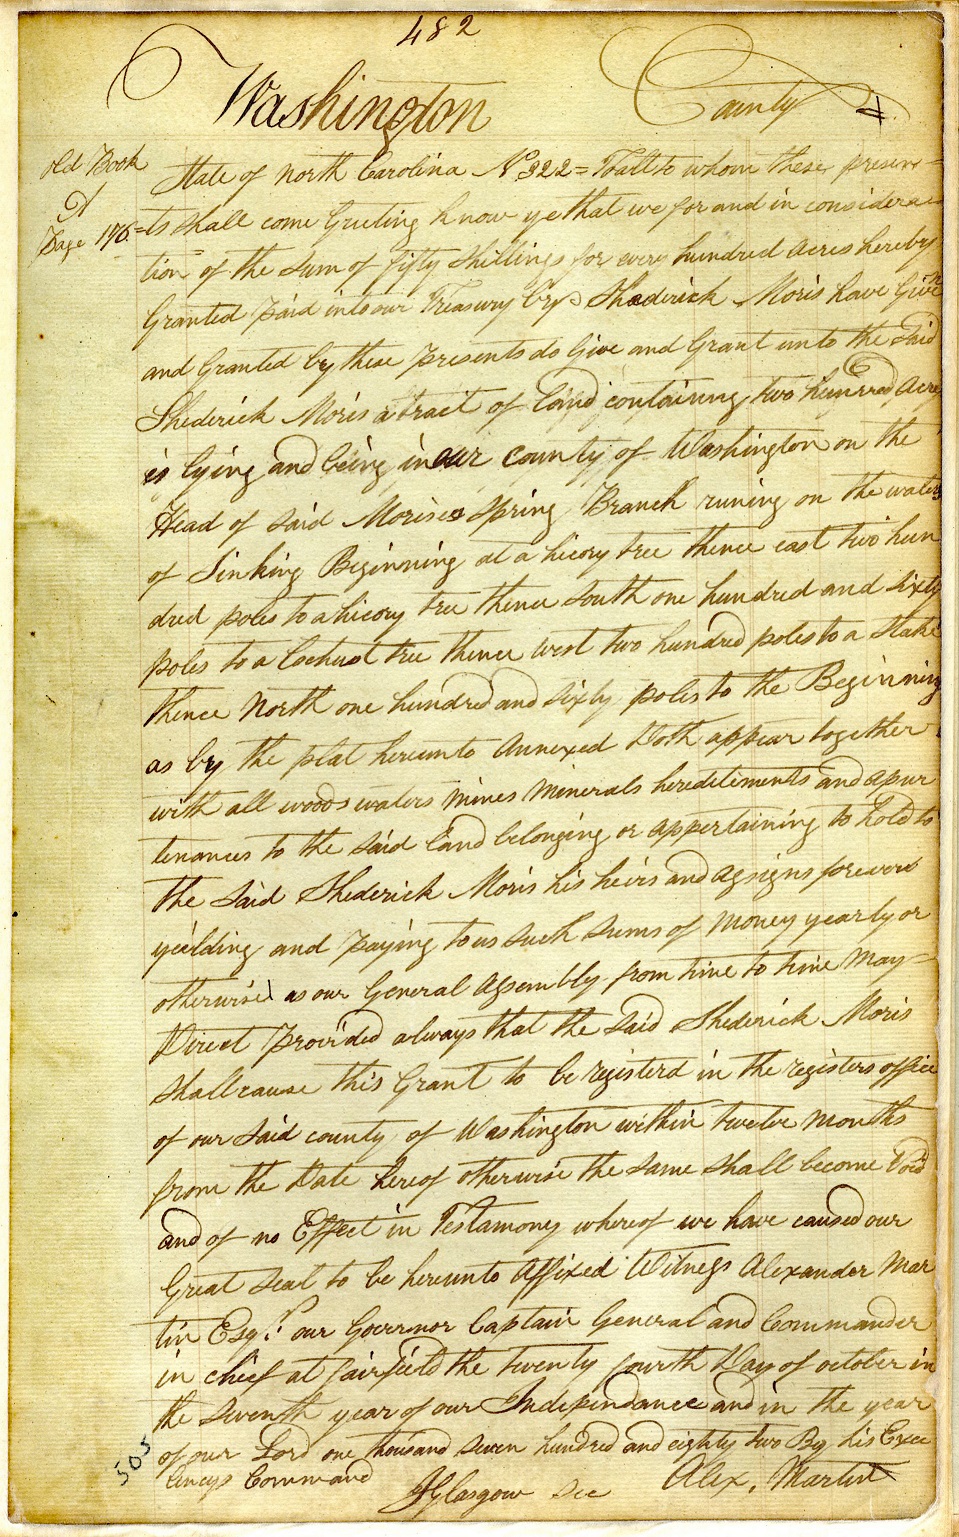 482
Washington County
Old Book
A
Page 176
State of North Carolina No 322 = To all to whom these presen=
=ts shall come Greeting know ye that we for and in considera=
tion of the sum of fifty shillings for every hundred acres hereby
Granted paid into our Treasury by Shederick Moris have Given
and Granted by these presents do Give and Grant unto the said
Shederick Moris a tract of land containing two hundred Acre
is lying and being in our county of Washington on the
Head of said Morises Spring Branch runing on the waters
of Sinking Beginning at a hicory tree thence east two hun
dred poles to a hicory tree thence south one hundred and sixty
poles to a Lochust tree thence west two hundred poles to a Stake
thence North one hundred and sixty poles to the Beginning
as by the plat hereunto Annexed Doth appear together
with all woods waters mines Minerals hereditements and apur
tenances to the said land belonging or appertaining to hold to
the said Shederick Moris his heirs and assigns forever
yeilding and paying to us such sums of Money yearly or
otherwise as our General Assembly from time to time May
Direct provided always that the said Shederick Moris
shall cause this Grant to be registerd in the registers office
of our said county of Washington within twelve Months
from the Date hereof otherwise the same shall become Void
and of no Effect in Testamony whereof we have caused our
Great seal to be hereunto Affixed Witness Alexander Mar
tin Esqr. our Governor Captain General and Commander
in chief at Fairfield the twenty fourth Day of october in
the seventh year of our Independance and in the year
of our Lord one thousand seven hundred and eighty two By his Exce
lencys Command
JGlasgow Sec Alex. Martin
505